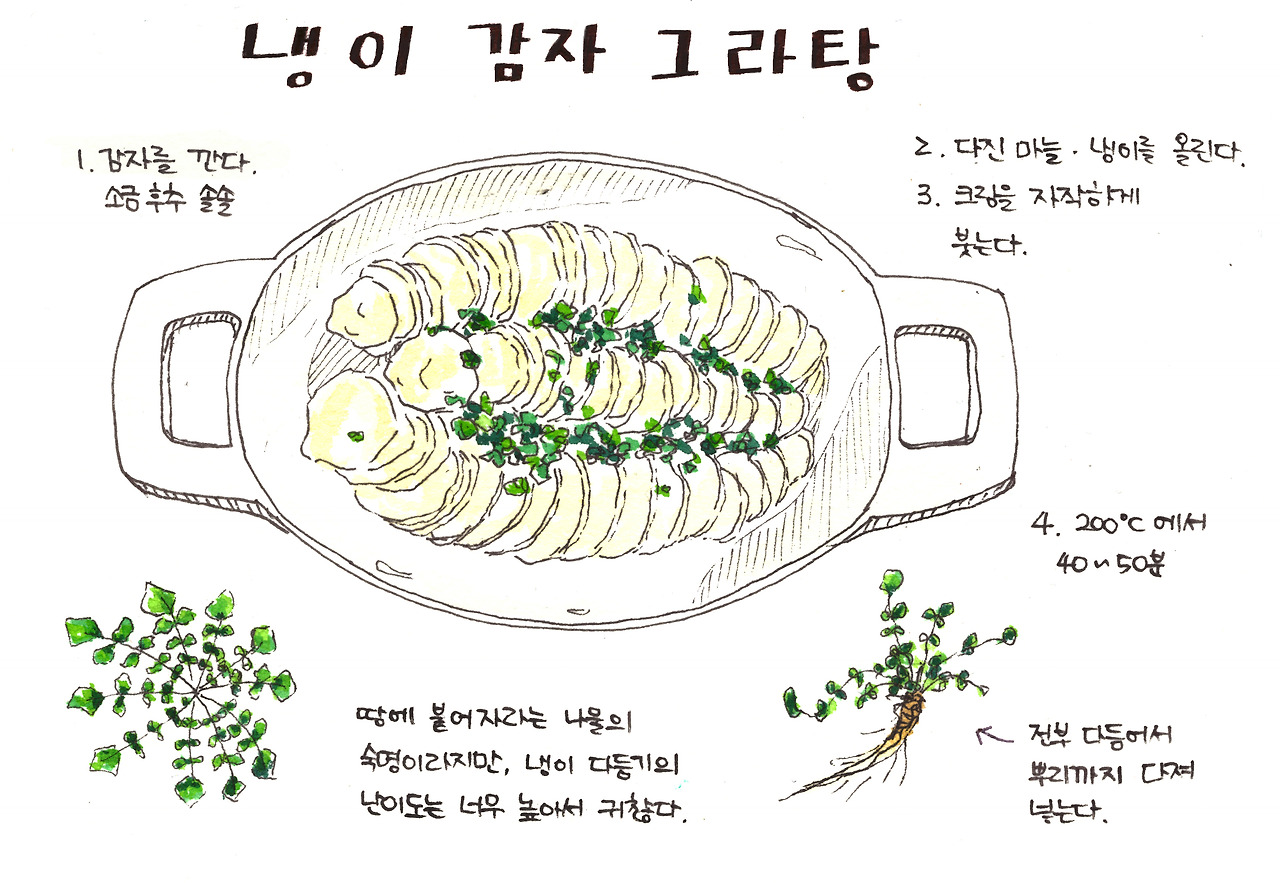 냉이 감자 그라탕
1. 감자를 깐다.
소금 후추 솔솔
2. 다진 마늘 · 냉이를 올린다.
3. 크림을 자작하게
붓는다.
4. 200℃ 에서
40~50분
땅에 붙어 자라는 나물의
숙명이라지만, 냉이 다듬기의
난이도는 너무 높아서 귀찮다.
전부 다듬어서
뿌리까지 다져
넣는다.